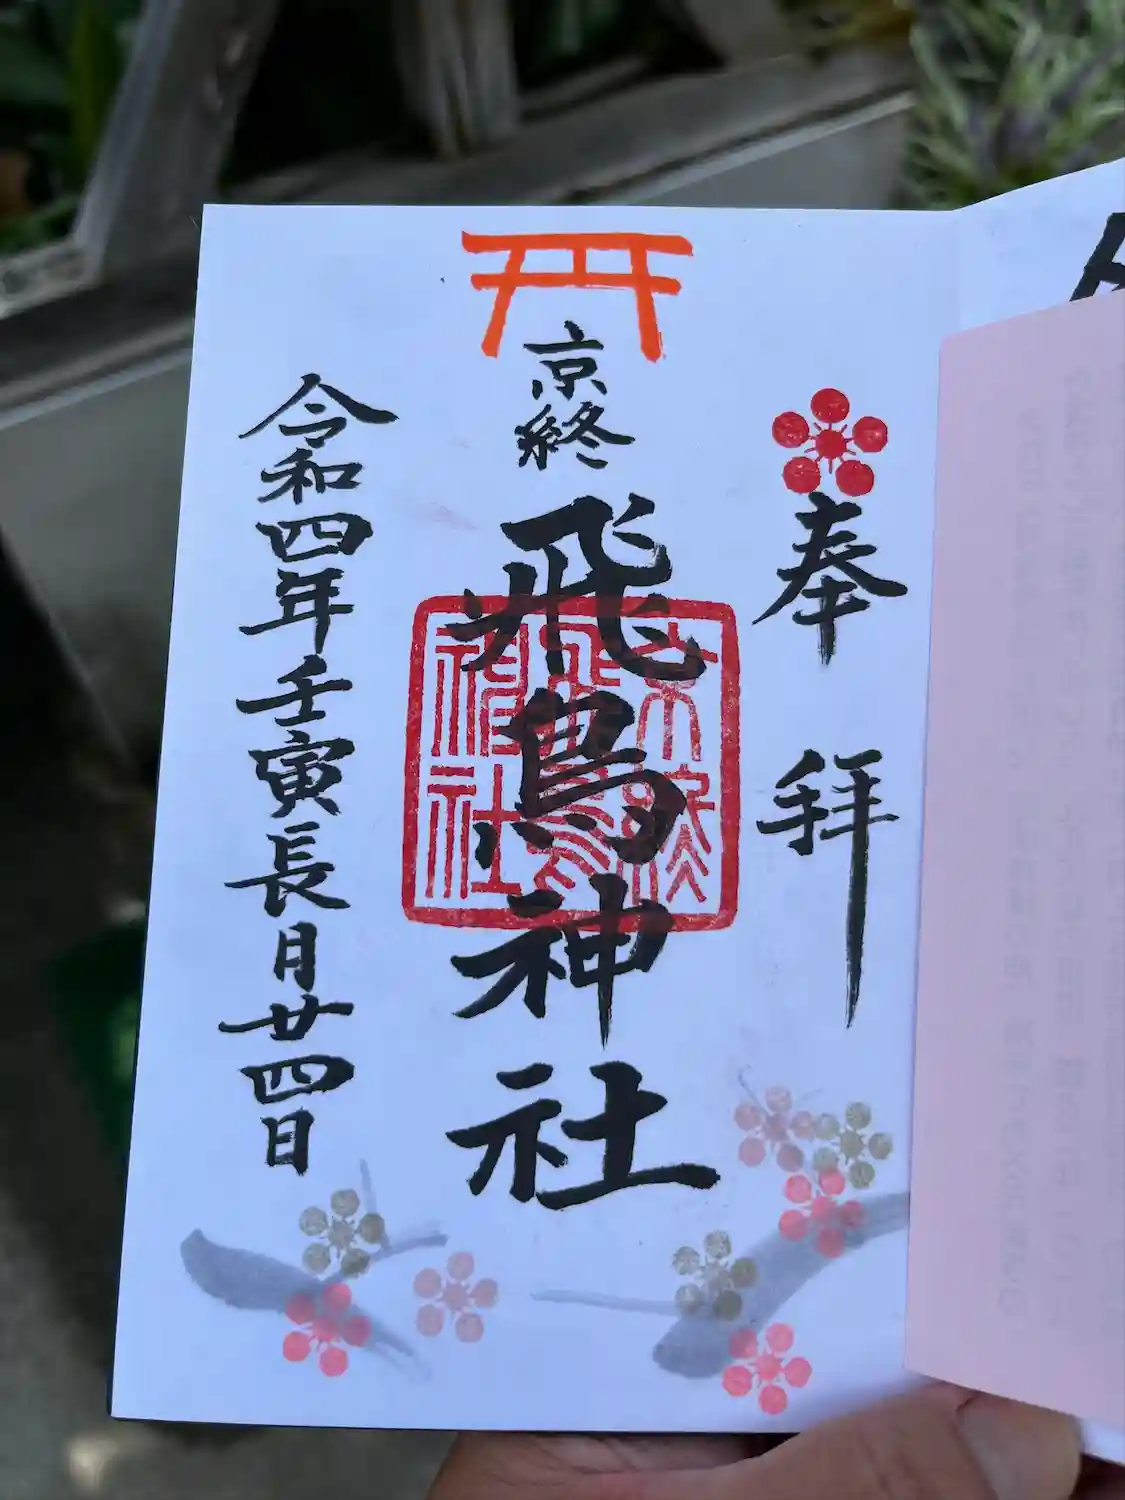 奉拝
京終
飛鳥神社
京終飛鳥神社
令和四年壬寅長月廿四日